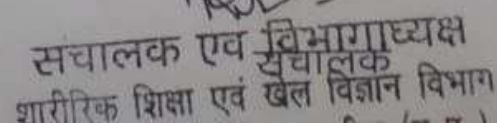 संचालक एव विभागाध्यक्ष
संचालक
शारीरिक शिक्षा एवं खेल विज्ञान विभाग